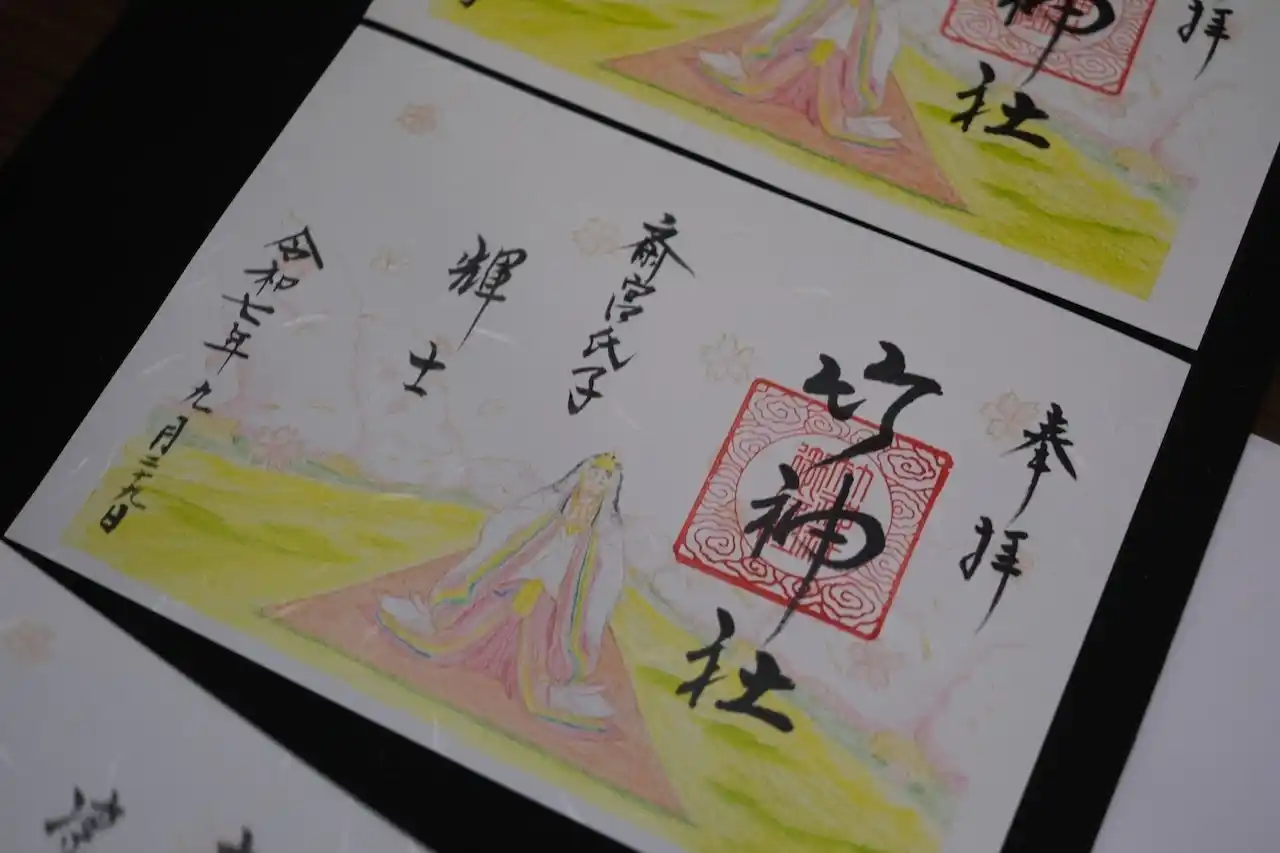 奉拝
竹神社
斎宮氏子
輝士
令和七年九月二十九日
拝
神社